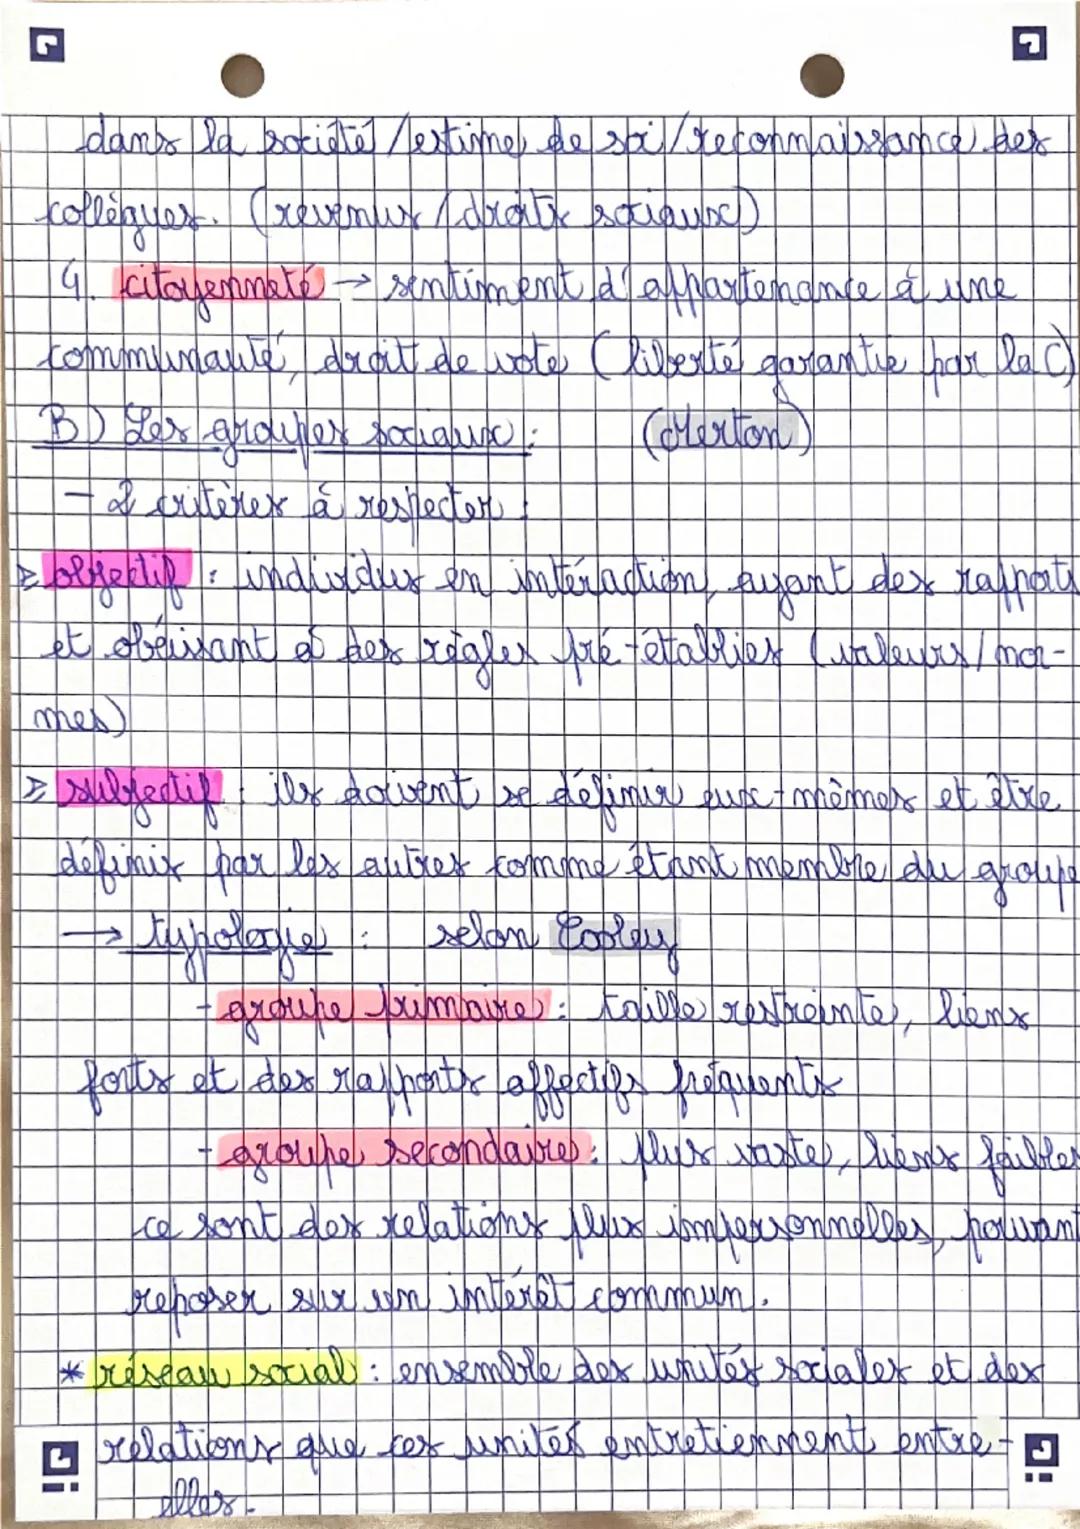 dans la société / estime de soi / reconnaissance des
collègues. (revenus / droits sociaux)
4. citoyenneté → sentiment d'appartenance à une
communauté, droit de vote (liberté garantie par la C)
B) Les groupes sociaux : (Merton)
- 2 critères à respecter :
objectif : individus en intéraction, ayant des rapports
et obéissant à des règles pré-établies (valeurs / nor-
mes)
subjectif : ils doivent se définir eux-mêmes et être
définis par les autres comme étant membre du groupe
→ typologie : selon Cooley
- groupe primaire : taille restreinte, liens
forts et des rapports affectifs fréquents
- groupe secondaire : plus vaste, liens faibles
ce sont des relations plus impersonnelles, pouvant
reposer sur un intérêt commun.
* réseau social : ensemble des unités sociales et des
relations que ces unités entretiennent entre-
elles.